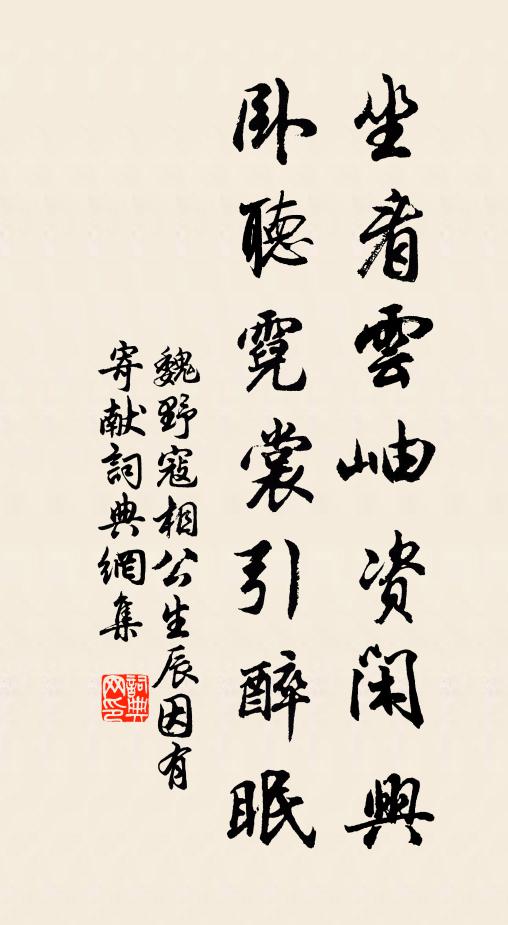 坐看雲岫资閑興
卧聽霓裳引醉眠
魏野寇相公生辰因有
寄献詞典網集
詞典网印